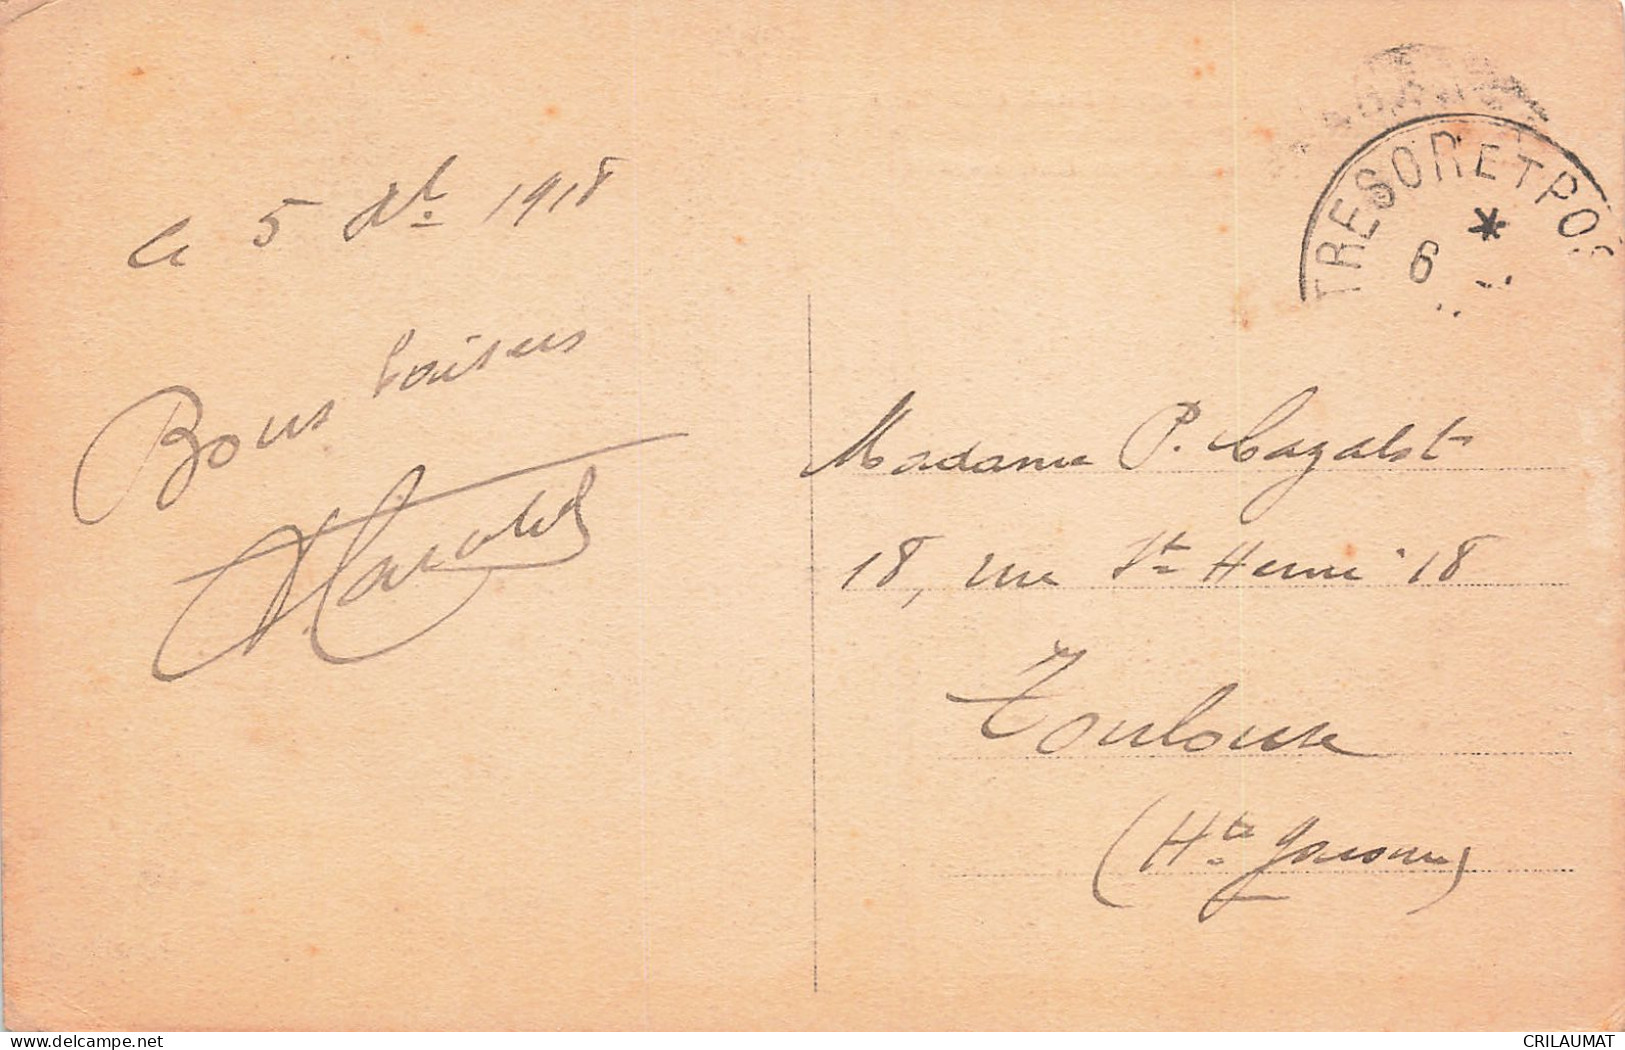 le 5 1918
Bons baisers
TRESOR ET POS
*
6
Madame P. Cazalbt
18, rue St Henri 18
Toulouse
(Hte Garonne)
delcampe.net
CRILAUMAT